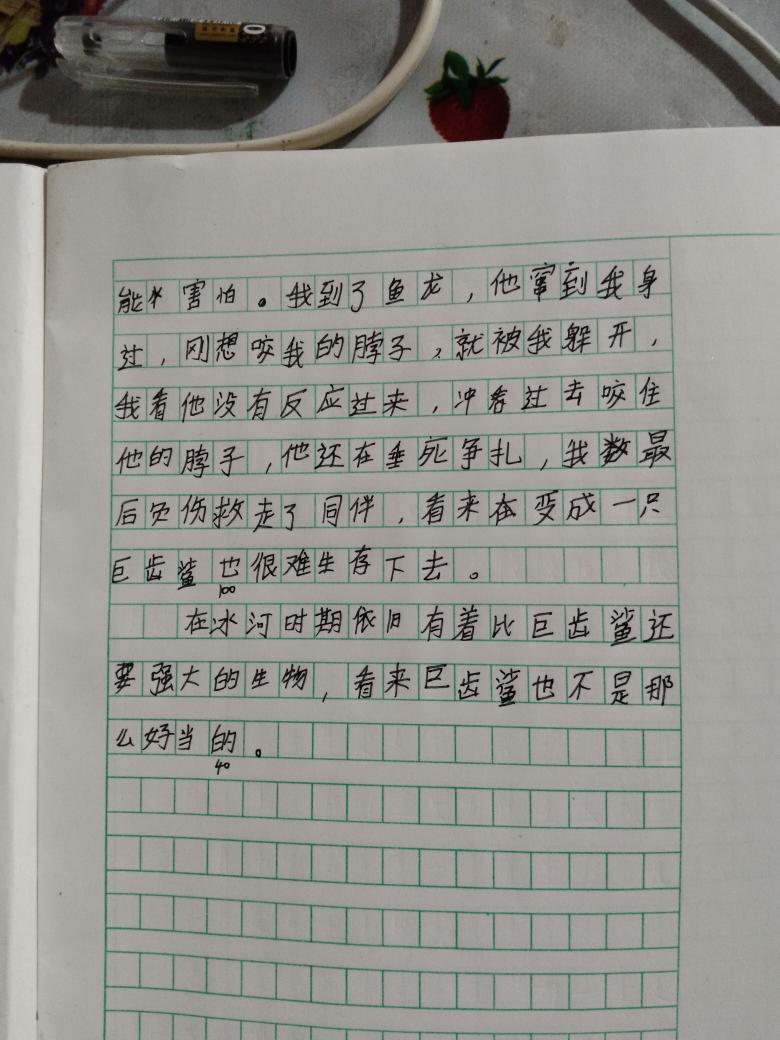 能不害怕。我到了鱼龙，他窜到我身
过，刚想咬我的脖子，就被我躲开，
我看他没有反应过来，冲着过去咬住
他的脖子，他还在垂死争扎，我数最
后负伤救走了同伴，看来在变成一只
巨齿鲨也很难生存下去。
100
在冰河时期依旧有着比巨齿鲨还
要强大的生物，看来巨齿鲨也不是那
么好当的。
40